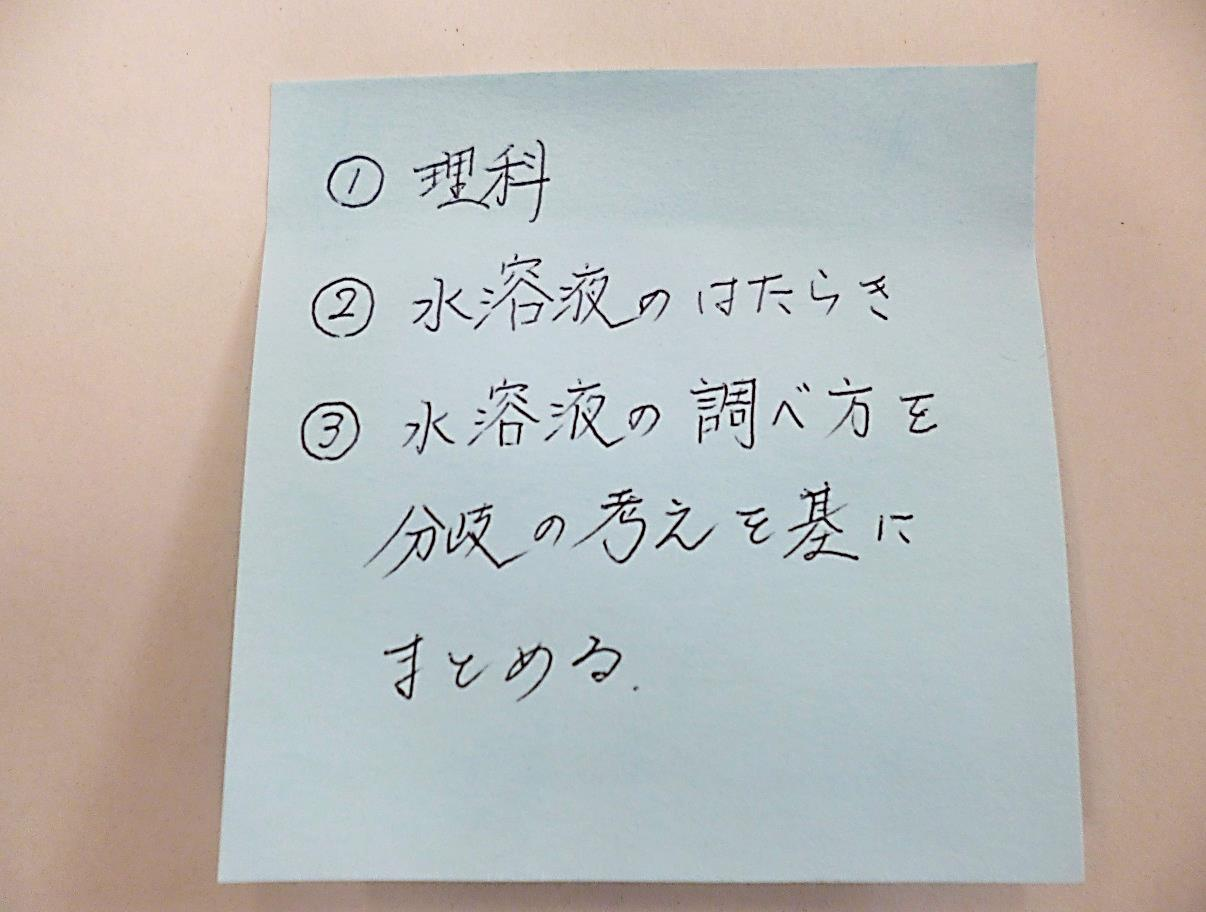 ① 理科
② 水溶液のはたらき
③ 水溶液の調べ方を
分岐の考えを基に
まとめる.